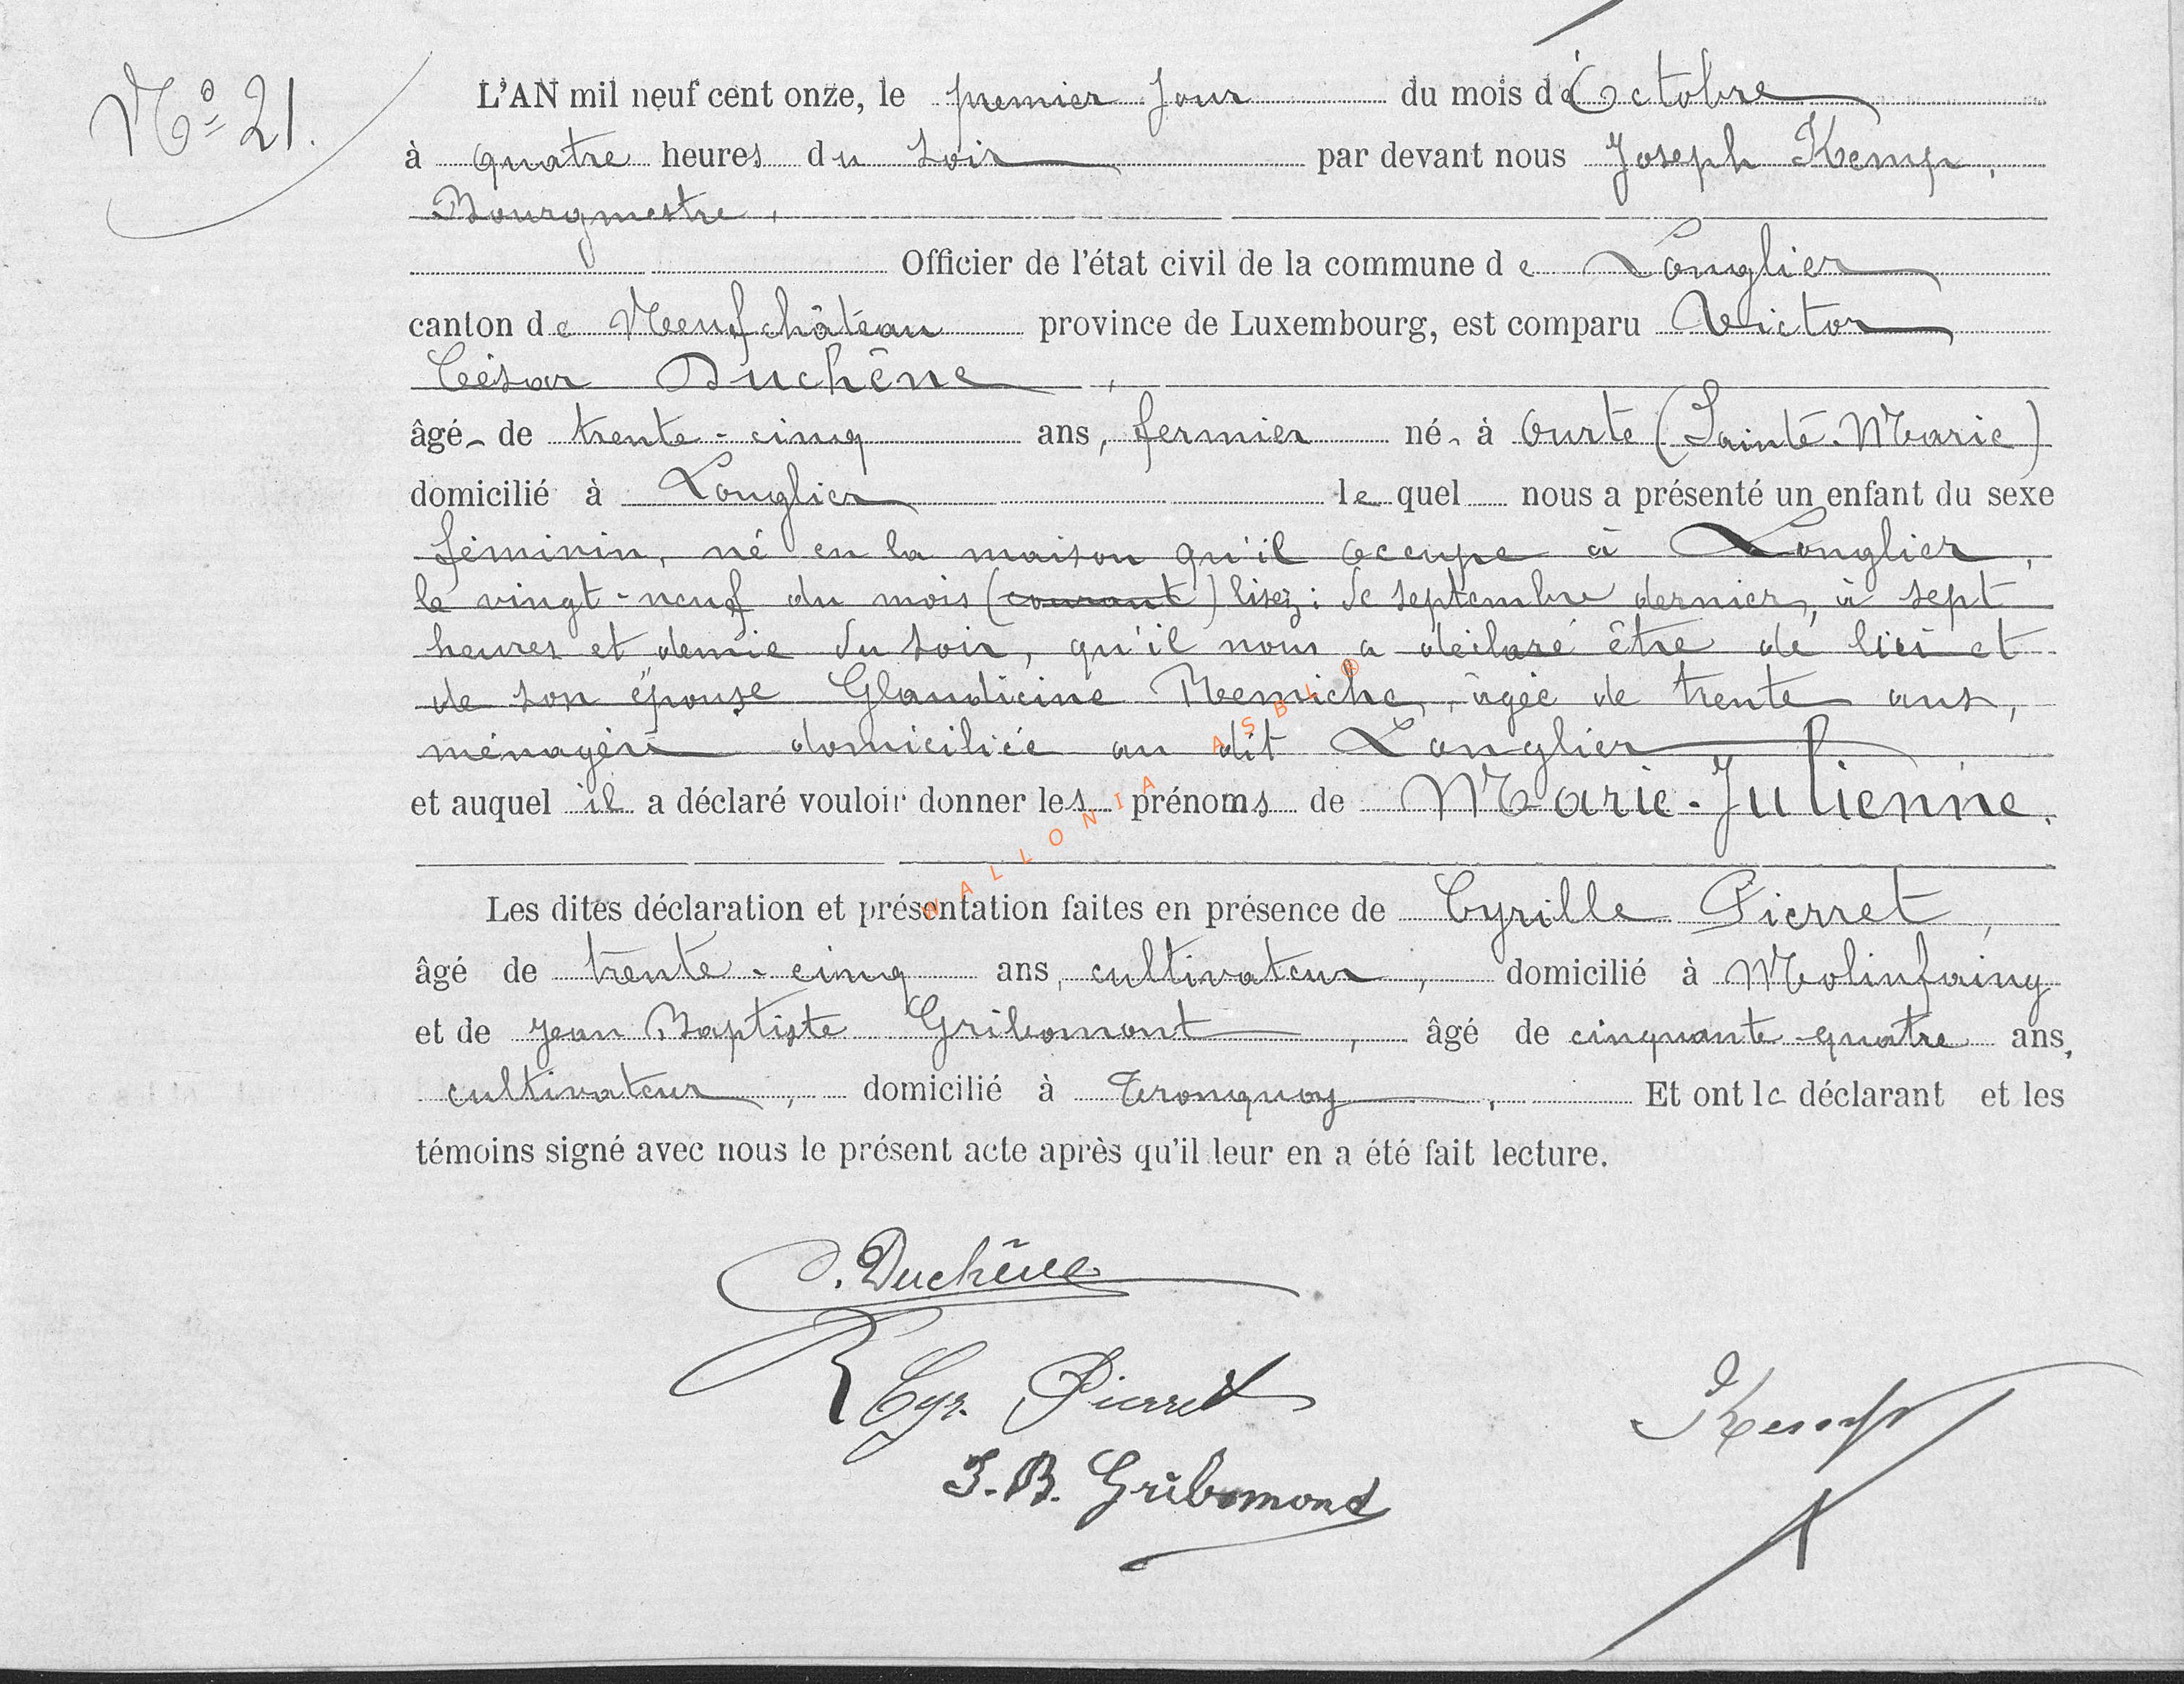 N° 21.
L'AN mil neuf cent onze, le premier jour du mois d'Octobre
à quatre heures du soir par devant nous Joseph Kemp,
Bourgmestre,
Officier de l'état civil de la commune de Longlier
canton de Neufchâteau province de Luxembourg, est comparu Victor
César Duchêne,
âgé de trente-cinq ans, fermier né à Ourte (Sainte-Marie)
domicilié à Longlier lequel nous a présenté un enfant du sexe
féminin, né en la maison qu'il occupe à Longlier,
le vingt-neuf du mois (courant) lisez: de septembre dernier, à sept
heures et demie du soir, qu'il nous a déclaré être de lui et
de son épouse Glandicine Remiche, âgée de trente ans,
ménagère domiciliée au dit Longlier
et auquel il a déclaré vouloir donner les prénoms de Marie-Julienne.
Les dites déclaration et présentation faites en présence de Cyrille Pierret,
âgé de trente-cinq ans, cultivateur, domicilié à Molinfaing
et de Jean Baptiste Gribomont, âgé de cinquante-quatre ans,
cultivateur, domicilié à Tronquoy, Et ont le déclarant et les
témoins signé avec nous le présent acte après qu'il leur en a été fait lecture.
Duchêne
Cyr. Pierret
J. Kemp
J.-B. Gribomont
WALLONIA ASBL ®